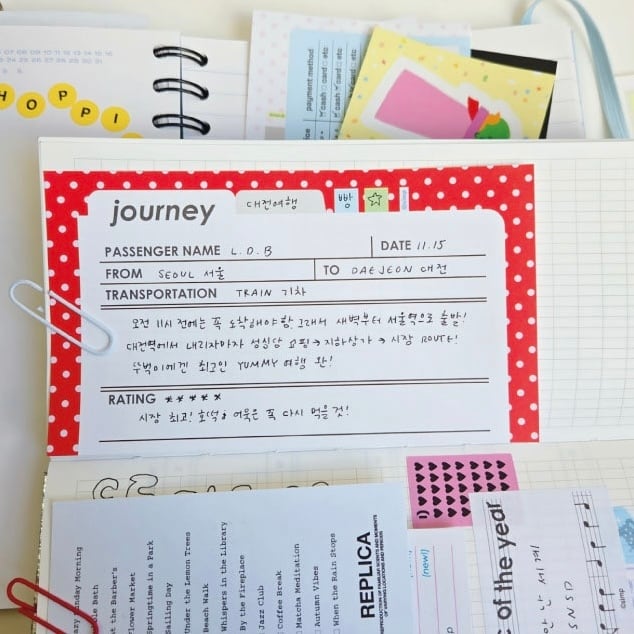 07 08 09 10 11 12 13 14 15 16
HOPPI
payment method
cash card etc
cash card etc
journey
대전여행
빵
PASSENGER NAME L.D.B
DATE 11.15
FROM SEOUL 서울
TO DAEJEON 대전
TRANSPORTATION TRAIN 기차
오전 11시 전에는 꼭 도착해야 함. 그래서 새벽부터 서울역으로 출발!
대전역에서 내리자마자 성심당 쇼핑 → 지하상가 → 시장 ROUTE!
뚜벅이에겐 최고인 YUMMY 여행 완!
RATING ★★★★★
시장 최고! 호떡, 어묵은 꼭 다시 먹을 것!
Sunday Morning
Bath
at the Barber's
Flower Market
Springtime in a Park
Sailing Day
Under the Lemon Trees
Beach Walk
Whispers in the Library
By the Fireplace
Jazz Club
Coffee Break
Matcha Meditation
Autumn Vibes
When the Rain Stops
REPLICA
(new!)
of the year
SNSD